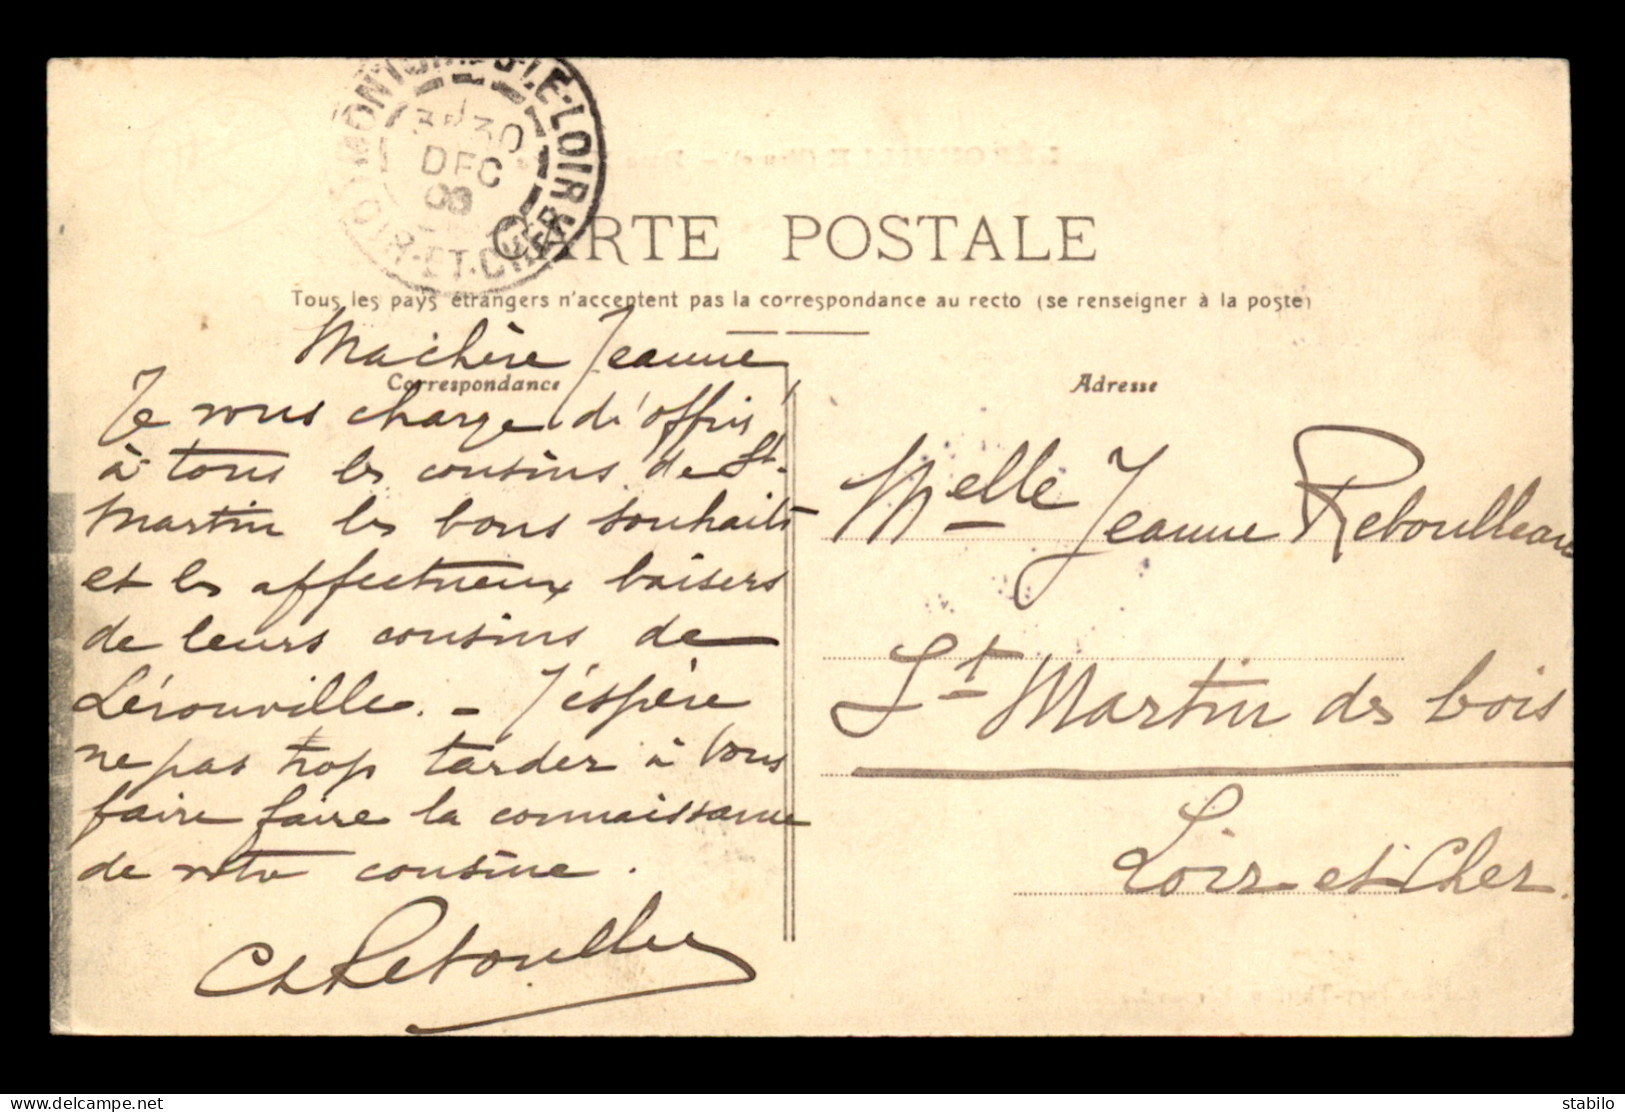 MONTOIRE-S-LE-LOIR
30
DEC
LOIR-ET-CHER
CARTE POSTALE
Tous les pays étrangers n'acceptent pas la correspondance au recto (se renseigner à la poste)
Correspondance
Adresse
Ma chère Jeanne
Je vous charge d'offrir
à tous les cousins de St
Martin les bons souhaits
et les affectueux baisers
de leurs cousins de
Lérouville. - J'espère
ne pas trop tarder à vous
faire faire la connaissance
de votre cousine.
Ch Reboulleau
Melle Jeanne Reboulleau
St Martin des bois
Loir et Cher.
stabilo